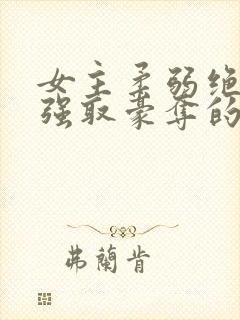 女主柔弱绝
强取豪夺的
弗蘭肯